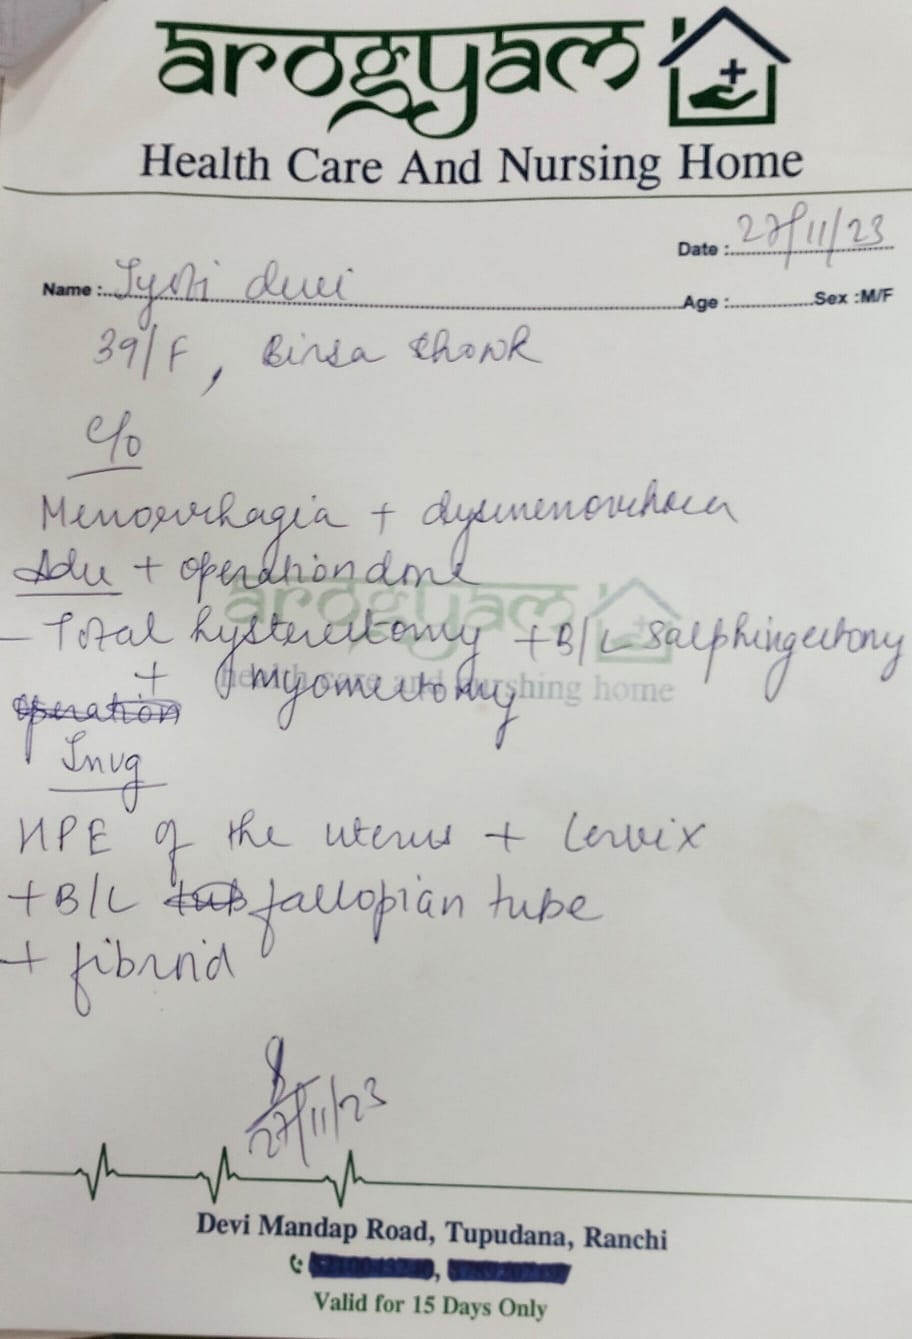 arogyam
Health Care And Nursing Home
Date : 27/11/23
Name : Jyoti devi Age : Sex : M/F
39/F, Birsa Chowk
C/o
Menorrhagia + dysmenorrhoea
Adv + operation done
- Total hysterectomy + B/L Salphingectomy
+ myomectomy
operation
Invg
HPE of the uterus + Cervix
+ B/L tub fallopian tube
+ fibroid
arogyam
health care and nurshing home
27/11/23
Devi Mandap Road, Tupudana, Ranchi
Valid for 15 Days Only